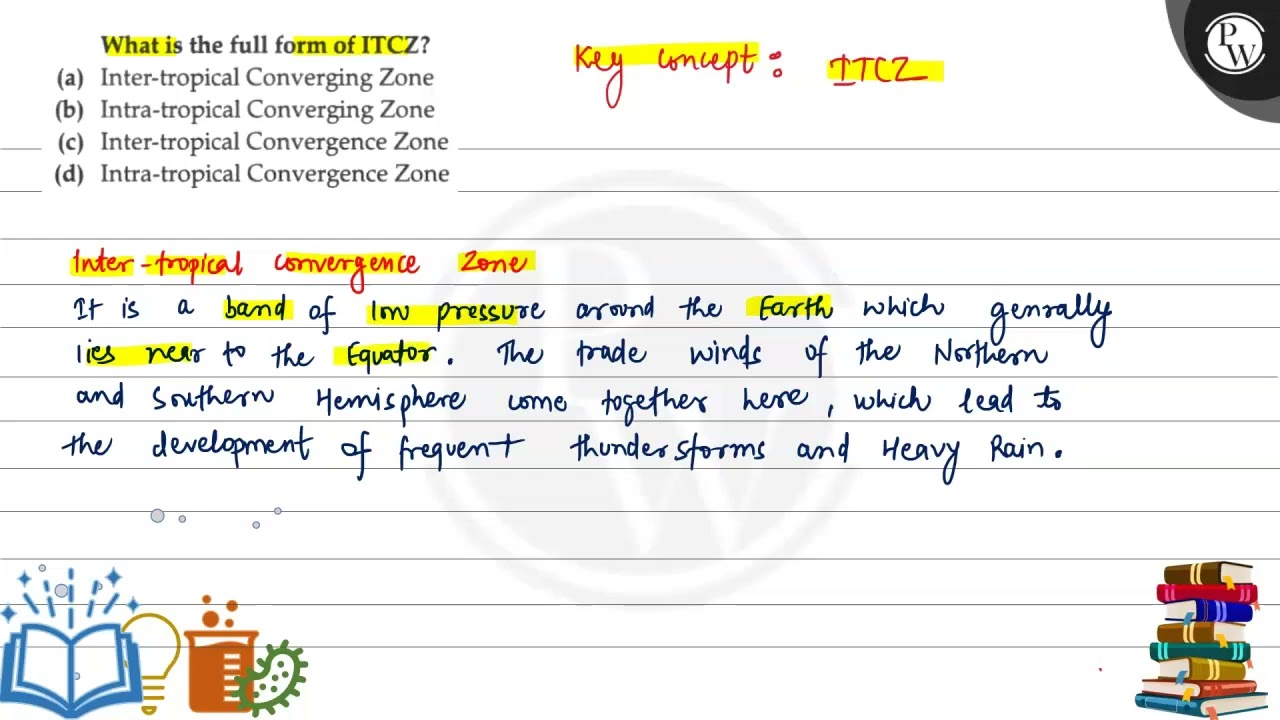 What is the full form of ITCZ?
(a) Inter-tropical Converging Zone
(b) Intra-tropical Converging Zone
(c) Inter-tropical Convergence Zone
(d) Intra-tropical Convergence Zone
Key concept : ITCZ
PW
Inter-tropical convergence Zone
It is a band of low pressure around the Earth which genrally
lies near to the Equator. The trade winds of the Northern
and Southern Hemisphere come together here, which lead to
the development of frequent thunderstorms and Heavy Rain.